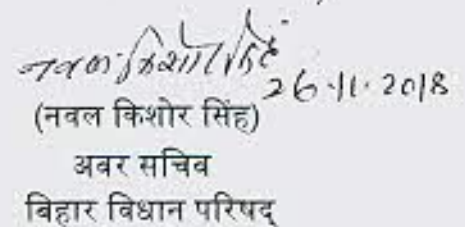 नवल किशोर सिंह
26.11.2018
(नवल किशोर सिंह)
अवर सचिव
बिहार विधान परिषद्